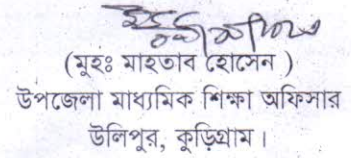 (মুহঃ মাহতাব হোসেন )
উপজেলা মাধ্যমিক শিক্ষা অফিসার
উলিপুর, কুড়িগ্রাম।